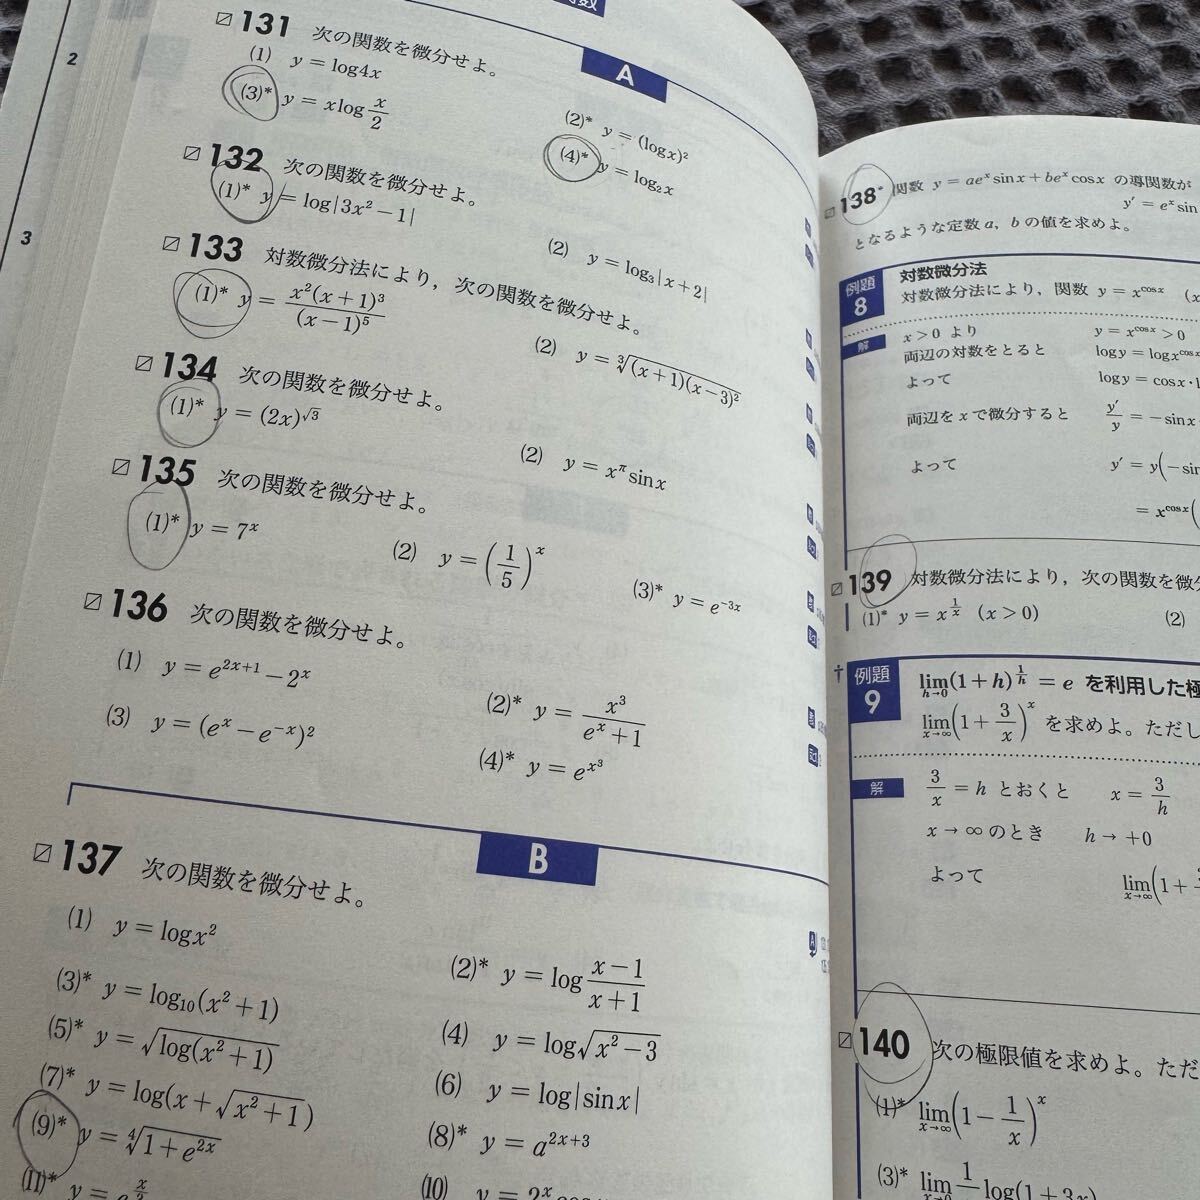 2
3
数
A
131 次の関数を微分せよ。
(1) y = log4x
(2)* y = (logx)²
(3)* y = xlog x/2
(4)* y = log₂x
132 次の関数を微分せよ。
(1)* y = log|3x² − 1|
(2) y = log₃|x + 2|
133 対数微分法により，次の関数を微分せよ。
(1)* y = x²(x + 1)³/(x − 1)⁵
(2) y = ∛(x + 1)(x − 3)²
134 次の関数を微分せよ。
(1)* y = (2x)^√3
(2) y = x^π sinx
135 次の関数を微分せよ。
(1)* y = 7^x
(2) y = (1/5)^x
(3)* y = e^−3x
136 次の関数を微分せよ。
(1) y = e^2x+1 − 2^x
(2)* y = x³/(e^x + 1)
(3) y = (e^x − e^−x)²
(4)* y = e^x³
B
137 次の関数を微分せよ。
(1) y = logx²
(2)* y = log (x − 1)/(x + 1)
(3)* y = log₁₀(x² + 1)
(4) y = log√(x² − 3)
(5)* y = √log(x² + 1)
(6) y = log|sinx|
(7)* y = log(x + √(x² + 1))
(8)* y = a^2x+3
(9)* y = ∜(1 + e^2x)
(10)
(11)*
138* 関数 y = ae^x sinx + be^x cosx の導関数が
y′ = e^x sin
となるような定数 a，b の値を求めよ。
例題 8 対数微分法
対数微分法により，関数 y = x^cosx (x
解 x > 0 より y = x^cosx > 0
両辺の対数をとると logy = logx^cosx
よって logy = cosx・
両辺を x で微分すると y′/y = − sinx
よって y′ = y(− sin
= x^cosx(
139 対数微分法により，次の関数を微分
(1)* y = x^1/x (x > 0) (2)
† 例題 9 lim h→0 (1 + h)^1/h = e を利用した極
lim x→∞ (1 + 3/x)^x を求めよ。ただし
解 3/x = h とおくと x = 3/h
x → ∞ のとき h → +0
よって lim x→∞ (1 +
140 次の極限値を求めよ。ただ
(1)* lim x→∞ (1 − 1/x)^x
(3)* lim 1 log(1 + 3x)